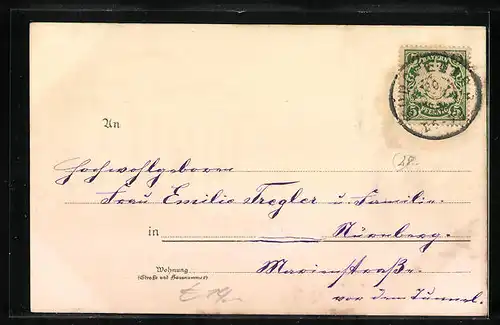 BAYERN
5 PFENNIG 5
An
(28.-
Hochwohlgeboren
Frau Emilie Tregler u. Familie.
in Nürnberg.
Wohnung
(Straße und Hausnummer)
Marienstraße.
vor dem Tunnel.